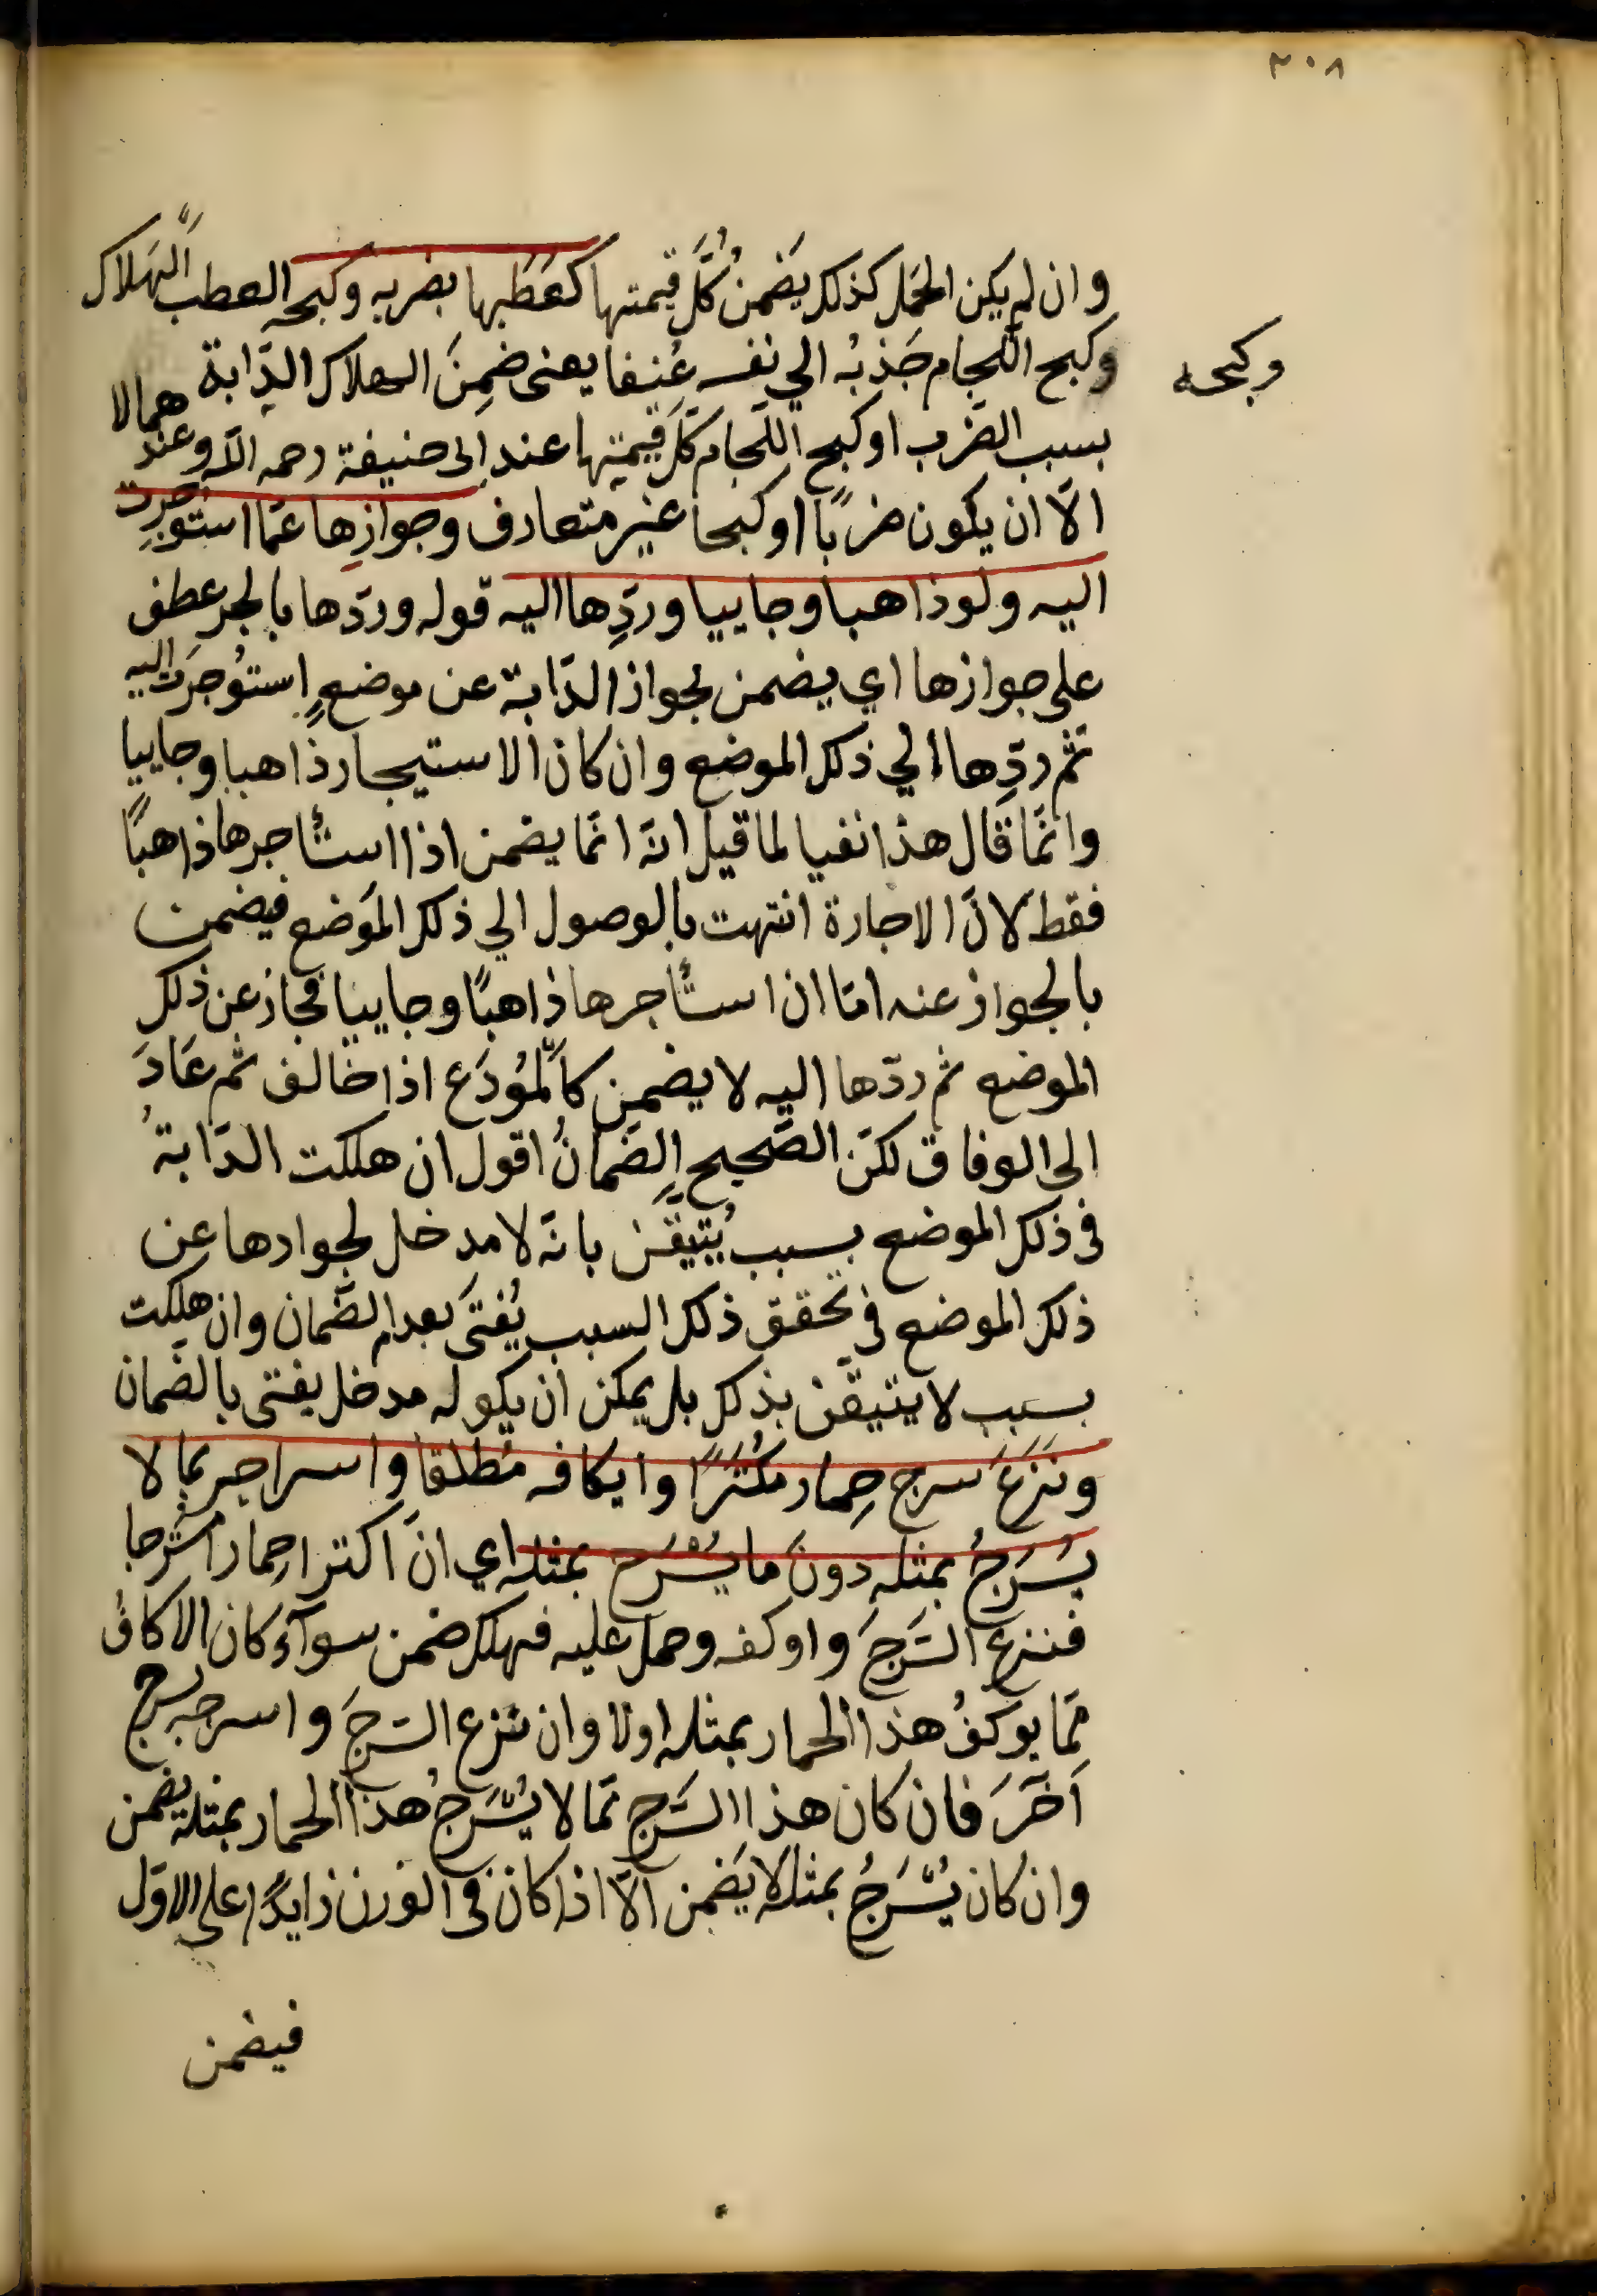 ٣٠٨
وان لم يكن الحَمل كذلك يَضمنُ كُلَّ قيمتها كعَطَبِها بضربه وكبحه العطب الهَلاك
وكبح اللّجام جَذبُه الي نفسه عُنفا يعنى ضمِنَ الهلاك الدّابة
وكبحه
بسبب الضّرب او كبح اللّجام كلَّ قيمتها عند ابى حنيفة رحمه الله وعندهما لا
الّا ان يكون ضربًا او كبحا غير متعارف وجوازِها عمّا استؤجرت
اليه ولو ذاهبا وجاييا وردِّها اليه قوله وردّها بالجر عطف
على جوازها اي يضمن بجواز الدّابة عن موضعٍ استؤجرت اليه
ثم ردِّها الي ذلك الموضع وان كان الاستيجار ذاهبا وجاييا
وانّما قال هذا نفيا لما قيل انّه انّما يضمن اذا استأجرها ذاهبًا
فقط لانّ الاجارة انتهت بالوصول الي ذلك الموَضع فيضمن
بالجواز عنه امّا ان استأجرها ذاهبًا وجاييا فجاز عن ذلك
الموضع ثم ردّها اليه لا يضمن كالمُودَع اذا خالف ثم عَادَ
الى الوفاق لكنّ الصّحيح الضّمانُ اقول ان هلكت الدّابةُ
فى ذلك الموضع بسبب يُتيقّن بانّه لا مدخل لجوازها عن
ذلك الموضع فى تحقق ذلك السبب يُفتىَ بعدم الضّمان وان هلكت
بسبب لا يتيقّن بذلك بل يمكن ان يكو له مدخل يفتى بالضّمان
ونَزعَ سرج حِمار مُكترًا وايكافه مُطلقا واسراجه بما لا
يُسرَجُ بمثله دونَ ما يُسْرَج بمثله اي ان اكترا حمارا مُسْرجا
فنزع السَّرجَ واوكفه وحمل عليه فهلك ضمن سوآءٌ كان الاكافُ
مّما يوكَفُ هذا الحمار بمثله اولا وان نزع السّرجَ واسرجه بسرج
اَخَرَ فان كان هذا السَّرج ممّا لا يُسْرَجُ هذا الحمار بمثله يضمن
وان كان يُسْرَجُ بمثله لا يَضمن الّا اذا كان فى الوزن زايدًا على الاوّل
فيضمن